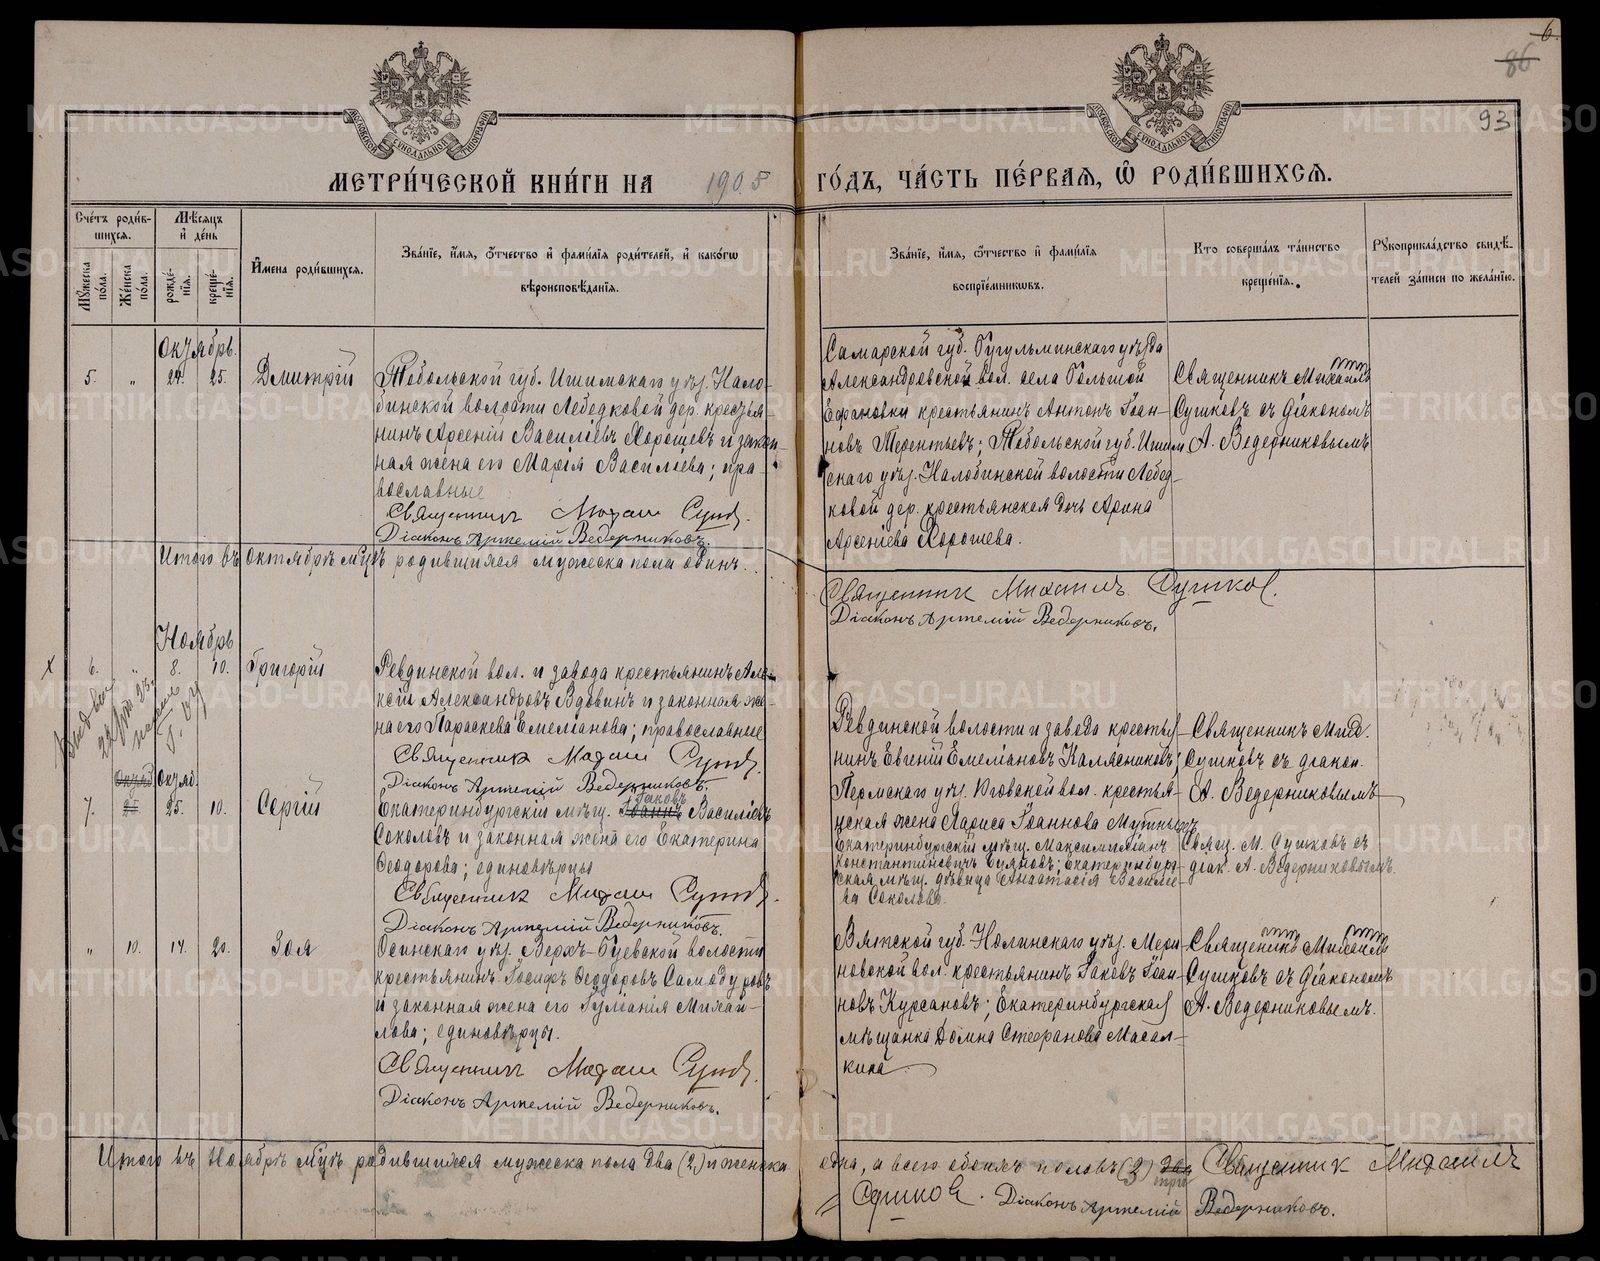 6.
86
93
МОСКОВСКОЙ СѴНОДАЛЬНОЙ ТИПОГРАФІИ
МОСКОВСКОЙ СѴНОДАЛЬНОЙ ТИПОГРАФІИ
МЕТРИ́ЧЕСКОЙ КНИ́ГИ НА 1905 ГО́ДЪ, ЧА́СТЬ ПЕ́РВАЯ, Ѿ РОДИ́ВШИХСЯ.
Сче́тъ роди́в-
шихся.
Мѣ́сяцъ
и҆ де́нь
Мꙋ́жеска по́ла.
Же́нска по́ла.
рожде́-
нїя.
креще́-
нїя.
И҆мена роди́вшихся.
Зва́нїе, и҆́мя, ѻ҆́тчество и҆ фами́лїя роди́телей, и҆ како́гѡ
вѣроисповѣ́данїя.
Зва́нїе, и҆́мя, ѻ҆́тчество и҆ фами́лїя
воспрїе́мникѡвъ.
Кто соверша́лъ та́инство
креще́нїя.
Рꙋкоприкла́дство свидѣ́-
телей за́писи по жела́нїю.
Октябрь.
5. " 24. 25. Дмитрій
Тобольской губ. Ишимскаго уѣз. Нало-
бинской волости Лебедковой дер. крестья-
нинъ Арсеній Василіевъ Хорошевъ и закон-
ная жена его Марія Василіева; пра-
вославные
Священникъ Михаилъ Сушков.
Діаконъ Артемій Ведерниковъ.
Самарской губ. Бугульминскаго уѣзда
Александровской вол. села Большой
Ефановки крестьянинъ Антонъ Іоан-
новъ Терентьевъ; Тобольской губ. Ишим-
скаго уѣз. Налобинской волости Лебед-
ковой дер. крестьянская дочь Арина
Арсеніева Хорошева.
Священникъ Михаилъ
Сушковъ съ діакономъ
А. Ведерниковымъ
Итого въ октябрѣ м-цѣ родившихся мужеска пола одинъ.
Священник Михаилъ Сушков.
Діаконъ Артемій Ведерниковъ.
Ноябрь
х 6. " 8. 10. Григорій
Ревдинской вол. и завода крестьянинъ Але-
ксій Александровъ Вдовинъ и законная же-
на его Параскева Емеліанова; православные
Священник Михаил Сушков.
Діаконъ Артемій Ведерниковъ.
Ревдинской волости и завода крестья-
нинъ Евгеній Емеліановъ Калясниковъ;
Пермскаго уѣз. Юговской вол. крестья-
нская жена Лариса Іоаннова Мутныхъ
Священникъ Мих.
Сушковъ съ діакон.
А. Ведерниковымъ
Октяб. Октяб.
7. 25 25. 10. Сергій
Іаковъ
Екатеринбургскій мѣщ. Іоаннъ Василіевъ
Соколовъ и законная жена его Екатерина
Ѳеодорова; единовѣрцы
Священник Михаил Сушков.
Діаконъ Артемій Ведерниковъ.
Екатеринбургскій мѣщ. Максимиліанъ
Константиновичъ Буяновъ; Екатеринбург-
ская мѣщ. дѣвица Анастасія Василіе-
ва Соколова.
Свящ. М. Сушковъ съ
діак. А. Ведерниковымъ.
" 10. 14. 20. Зоя
Осинскаго уѣз. Верхъ-Буевской волости
крестьянинъ Іосифъ Ѳеодоровъ Самодуровъ
и законная жена его Іуліанія Михай-
лова; единовѣрцы.
Священник Михаил Сушков.
Діаконъ Артемій Ведерниковъ.
Вятской губ. Нолинскаго уѣз. Мери-
новской вол. крестьянинъ Іаковъ Іоан-
новъ Курсановъ; Екатеринбургская
мѣщанка Домна Стефанова Масал-
кина
Священникъ Михаилъ
Сушковъ съ діакономъ
А. Ведерниковымъ.
Итого въ Ноябрѣ м-цѣ родившихся мужеска пола два (2) и женска
одна, а всего обоего половъ (3) три Священник Михаилъ
Сушков. Діаконъ Артемій Ведерниковъ.
METRIKI.GASO-URAL.RU